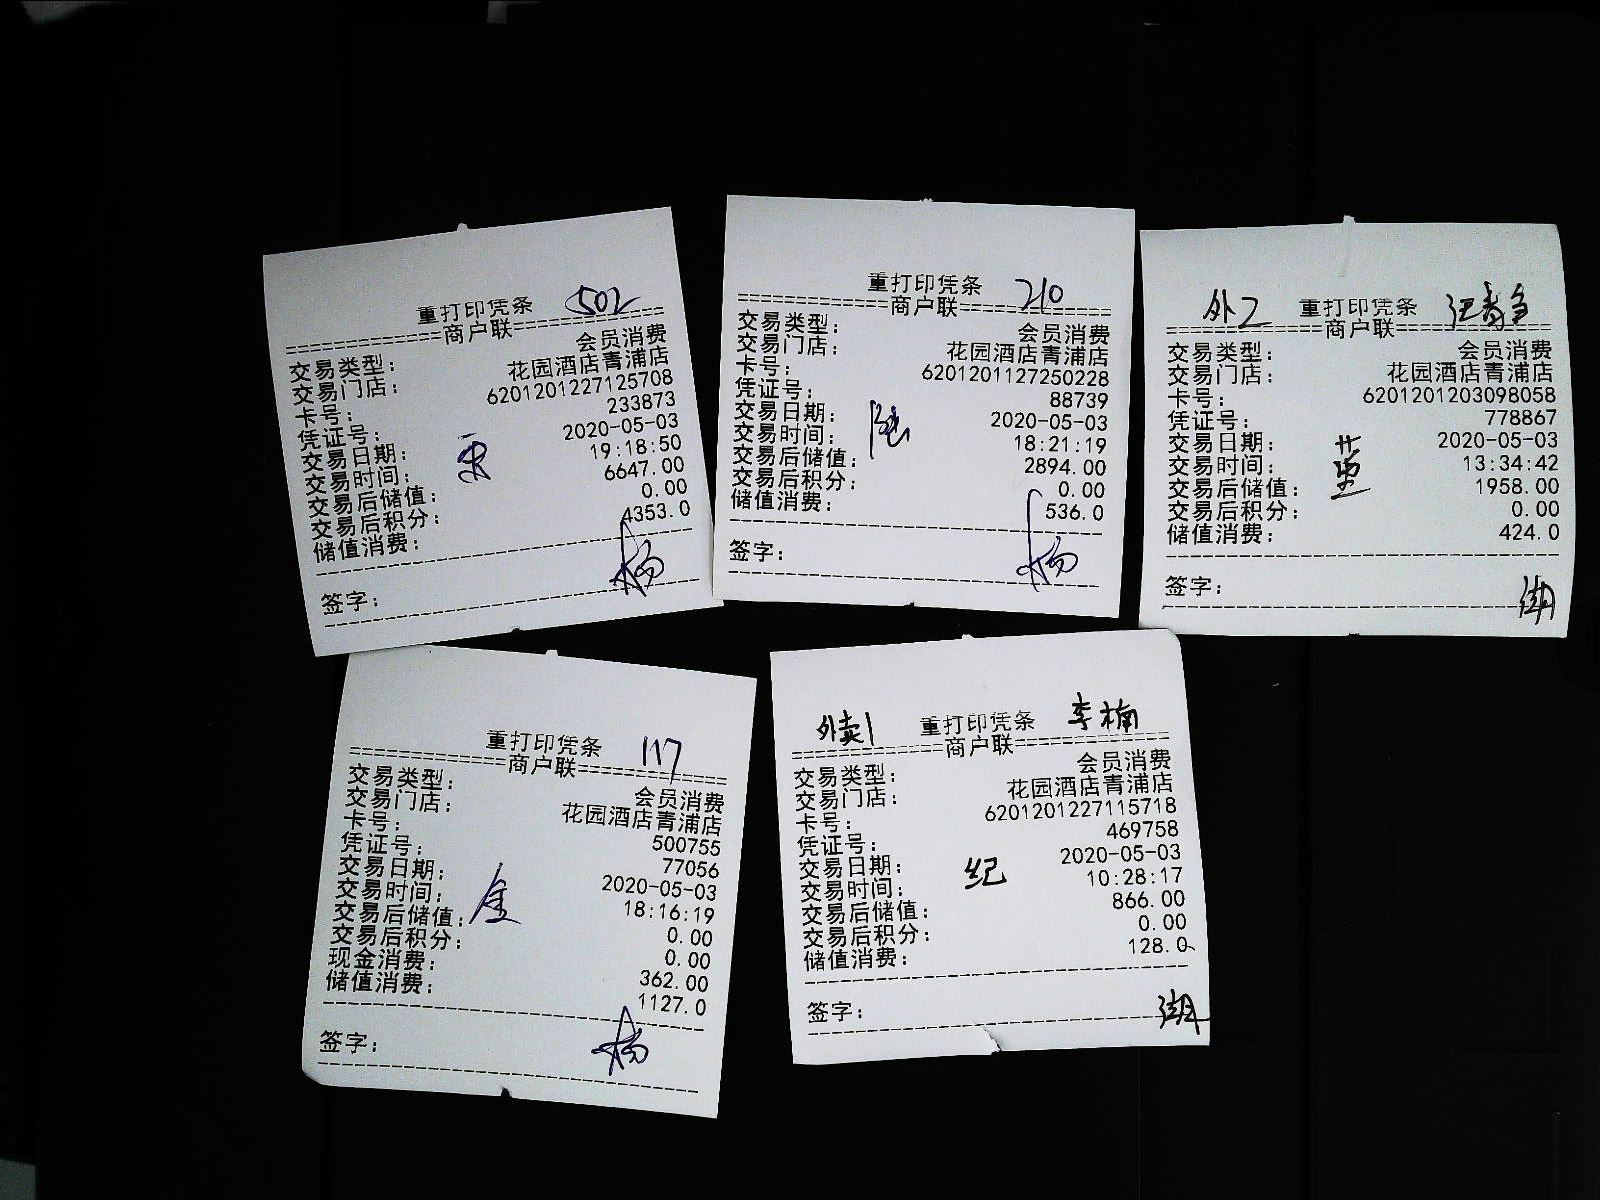 重打印凭条 502
商户联
交易类型： 会员消费
交易门店： 花园酒店青浦店
卡号： 6201201227125708
凭证号： 233873
交易日期： 2020-05-03
交易时间： 19:18:50
交易后储值： 6647.00
交易后积分： 0.00
储值消费： 4353.0
签字： 杨
重打印凭条 210
商户联
交易类型： 会员消费
交易门店： 花园酒店青浦店
卡号： 6201201127250228
凭证号： 88739
交易日期： 2020-05-03
交易时间： 18:21:19
陆
交易后储值： 2894.00
交易后积分： 0.00
储值消费： 536.0
签字： 杨
外2 重打印凭条
商户联
交易类型： 会员消费
交易门店： 花园酒店青浦店
卡号： 6201201203098058
凭证号： 778867
交易日期： 2020-05-03
交易时间： 13:34:42
交易后储值： 1958.00
交易后积分： 0.00
储值消费： 424.0
签字：
重打印凭条 117
商户联
交易类型： 会员消费
交易门店： 花园酒店青浦店
卡号： 500755
凭证号： 77056
交易日期： 2020-05-03
交易时间： 18:16:19
金
交易后储值： 0.00
交易后积分： 0.00
现金消费： 362.00
储值消费： 1127.0
签字： 杨
外卖1 重打印凭条 李楠
商户联
交易类型： 会员消费
交易门店： 花园酒店青浦店
卡号： 6201201227115718
凭证号： 469758
交易日期： 2020-05-03
纪
交易时间： 10:28:17
交易后储值： 866.00
交易后积分： 0.00
储值消费： 128.0
签字：